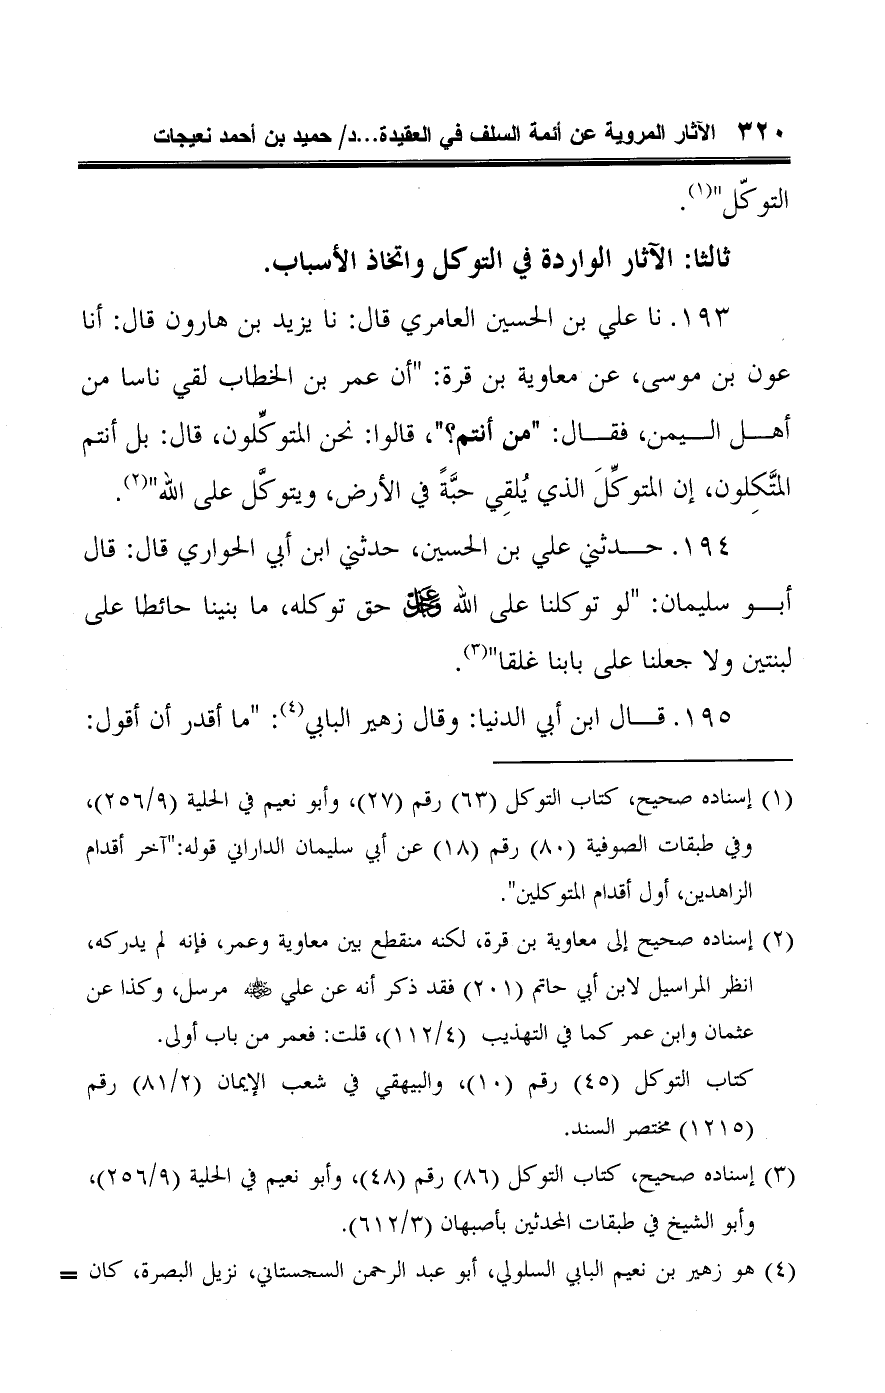 ٣٢٠ الآثار المروية عن أئمة السلف في العقيدة...د/ حميد بن أحمد نعيجات
التوكّل"(١).
ثالثا: الآثار الواردة في التوكل واتخاذ الأسباب.
١٩٣. نا علي بن الحسين العامري قال: نا يزيد بن هارون قال: أنا
عون بن موسى، عن معاوية بن قرة: "أن عمر بن الخطاب لقي ناسا من
أهــل الــيمن، فقــال: "من أنتم؟"، قالوا: نحن المتوكِّلون، قال: بل أنتم
المتَّكِلون، إن المتوكِّلَ الذي يُلقِي حبَّةً في الأرض، ويتوكَّل على الله"(٢).
١٩٤. حــدثني علي بن الحسين، حدثني ابن أبي الحواري قال: قال
أبــو سليمان: "لو توكلنا على الله ﷿ حق توكله، ما بنينا حائطا على
لبنتين ولا جعلنا على بابنا غلقا"(٣).
١٩٥. قــال ابن أبي الدنيا: وقال زهير البابي(٤): "ما أقدر أن أقول:
(١) إسناده صحيح، كتاب التوكل (٦٣) رقم (٢٧)، وأبو نعيم في الحلية (٢٥٦/٩)،
وفي طبقات الصوفية (٨٠) رقم (١٨) عن أبي سليمان الداراني قوله:"آخر أقدام
الزاهدين، أول أقدام المتوكلين".
(٢) إسناده صحيح إلى معاوية بن قرة، لكنه منقطع بين معاوية وعمر، فإنه لم يدركه،
انظر المراسيل لابن أبي حاتم (٢٠١) فقد ذكر أنه عن علي ﵁ مرسل، وكذا عن
عثمان وابن عمر كما في التهذيب (١١٢/٤)، قلت: فعمر من باب أولى.
كتاب التوكل (٤٥) رقم (١٠)، والبيهقي في شعب الإيمان (٨١/٢) رقم
(١٢١٥) مختصر السند.
(٣) إسناده صحيح، كتاب التوكل (٨٦) رقم (٤٨)، وأبو نعيم في الحلية (٢٥٦/٩)،
وأبو الشيخ في طبقات المحدثين بأصبهان (٦١٢/٣).
(٤) هو زهير بن نعيم البابي السلولي، أبو عبد الرحمن السجستاني، نزيل البصرة، كان =